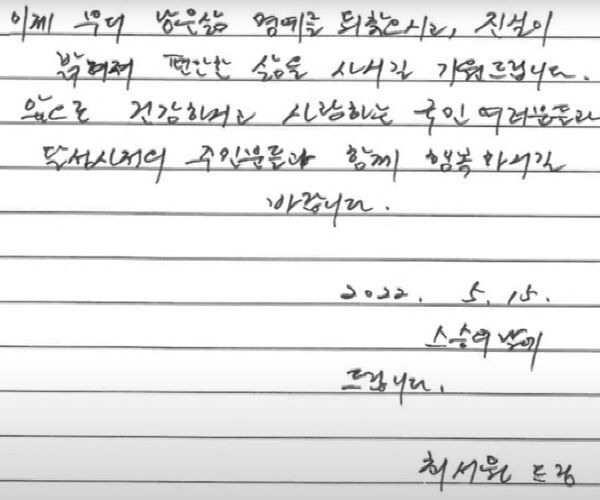 이제 부디 남은삶 명예를 되찾으시고, 진실이
밝혀져 편안한 삶을 사시길 기원드립니다.
앞으로 건강하시고 사랑하는 국민여러분들과
달성사저의 주민분들과 함께 행복하시길
바랍니다.
2022. 5. 15.
스승의날에
드립니다.
최서원 드림